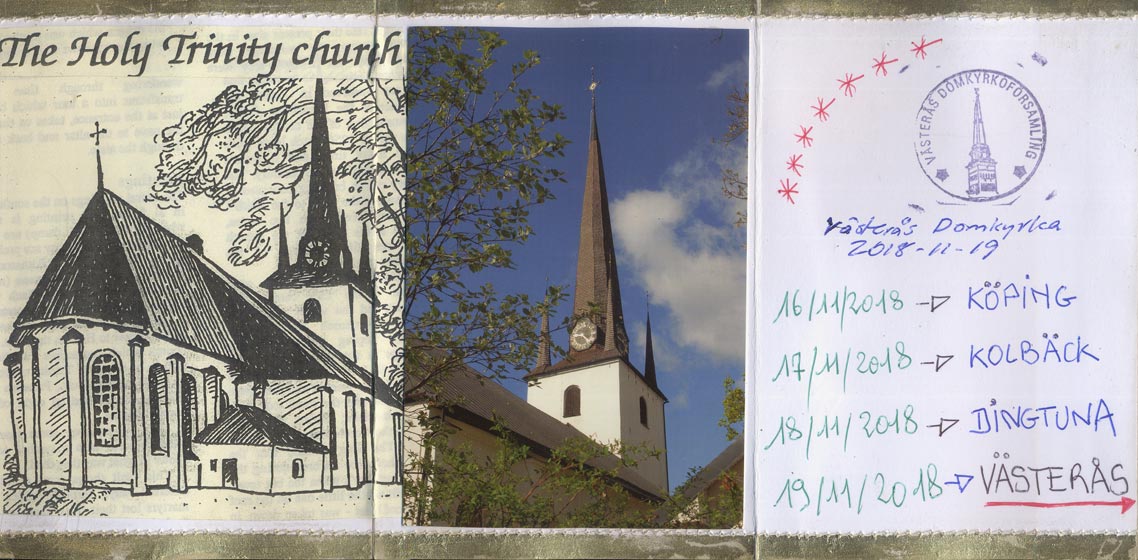 The Holy Trinity church
VÄSTERÅS DOMKYRKOFÖRSAMLING
Västerås Domkyrka
2018-11-19
16/11/2018 → KÖPING
17/11/2018 → KOLBÄCK
18/11/2018 → DINGTUNA
19/11/2018 → VÄSTERÅS